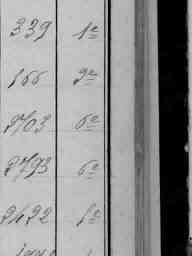 339 1e
166 2e
2703 6e
2793 6e
2422 1e